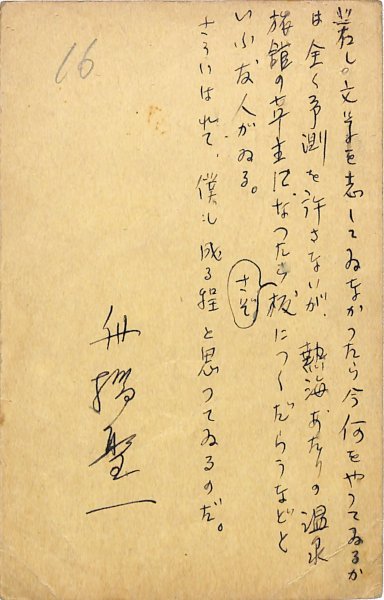 若し。文学を志してゐなかつたら今何をやつてゐるか
は全く予測を許さないが、熱海あたりの温泉
旅館の亭主になつたらさぞ板につくだらうなどと
いふ友人がゐる。
さういはれて、僕も成る程と思つてゐるのだ。
舟橋聖一
16